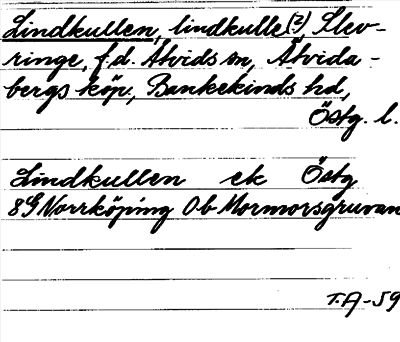 Lindkullen, lindkulle(2) Slev-
ringe, f.d. Åtvids sn, Åtvida-
bergs köp., Bankekinds hd,
Östg. l.
Lindkullen ek Östg
8G Norrköping 0b Mormorsgruvan
T.A-59